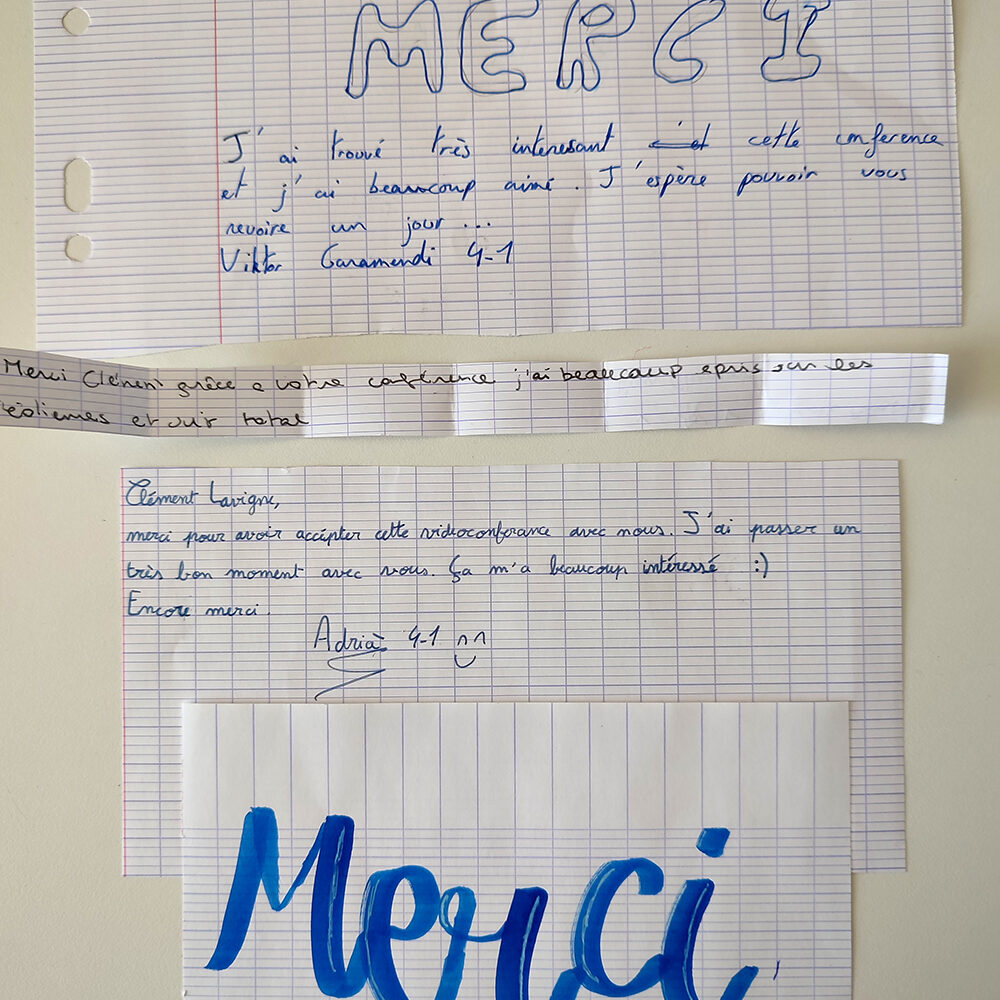 MERCI
J'ai trouvé très interesant cette conference
et j'ai beaucoup aimé. J'espère pouvoir vous
revoire un jour...
Viktor Garamendi 4-1
Merci Clément grâce a votre conférence j'ai beaucoup apris sur les
éoliennes et sur total
Clément Lavigne,
merci pour avoir accépter cette vidéoconférance avec nous. J'ai passer un
très bon moment avec vous. Ça m'a beaucoup intéressé :)
Encore merci.
Adrià 4-1
Merci